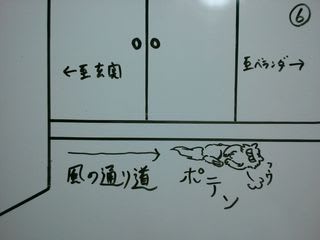 ⑥
←至玄関
至ベランダ→
風の通り道
ポテン
フウ